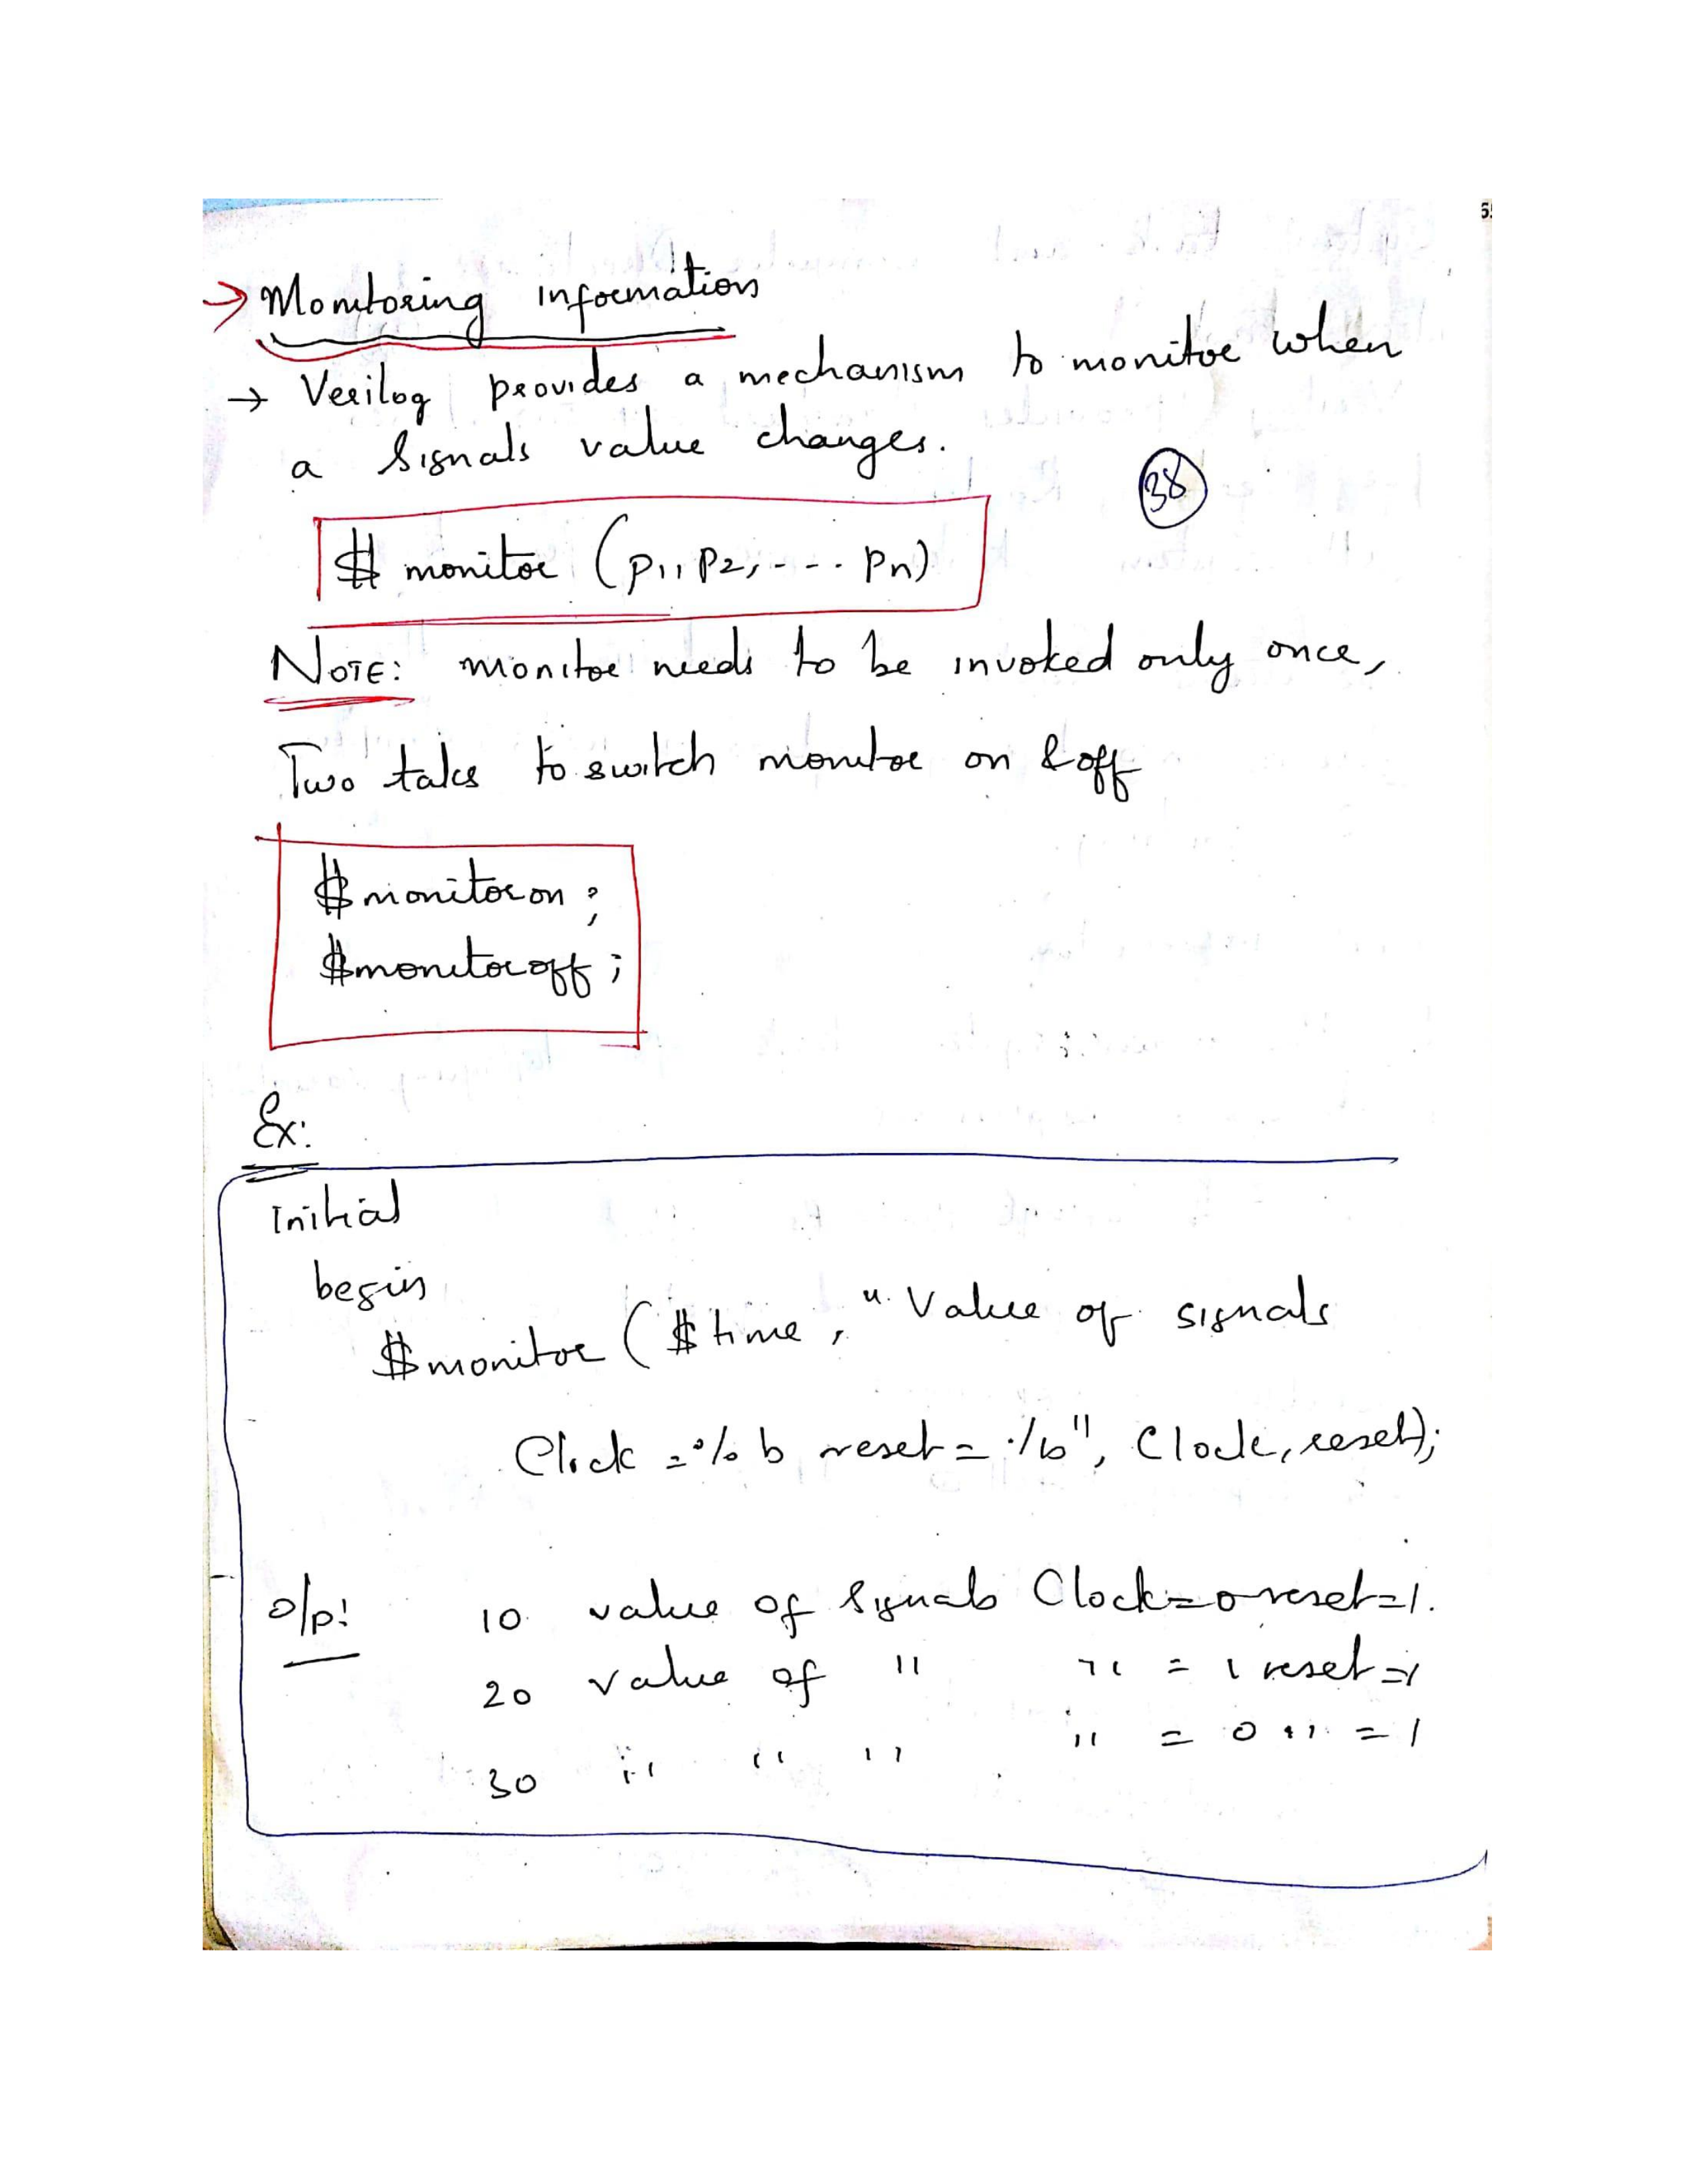 → Monitoring information
→ Verilog provides a mechanism to monitor when
a signals value changes.
38
$ monitor (p1, p2, - - - . pn)
NOTE: monitor needs to be invoked only once,
Two taks to switch monitor on & off
$monitoron ;
$monitoroff ;
Ex:
initial
begin
$monitor ($time, "Value of signals
Clock = % b reset = %b", Clock, reset);
o/p: 10 value of signals Clock=0 reset=1.
20 value of " " = 1 reset=1
30 " " " " = 0 " = 1